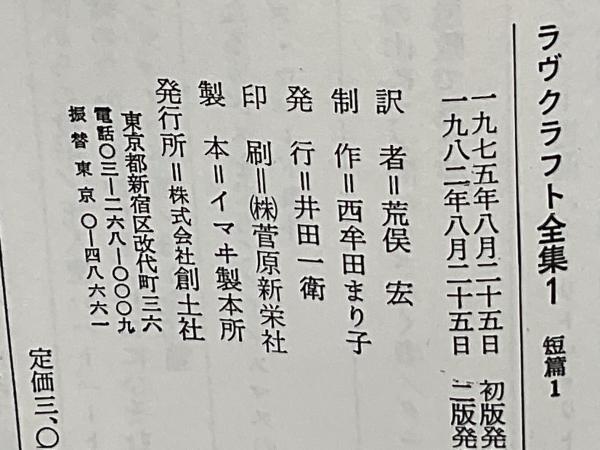 ラヴクラフト全集1 短篇1
一九七五年八月二十五日 初版発
一九八二年八月二十五日 二版発
訳者＝荒俣宏
制作＝西牟田まり子
発行＝井田一衛
印刷＝㈱菅原新栄社
製本＝イマヰ製本所
発行所＝株式会社創土社
東京都新宿区改代町三六
電話〇三―二六八―〇〇〇九
振替東京〇―四八六六一
定価三、〇